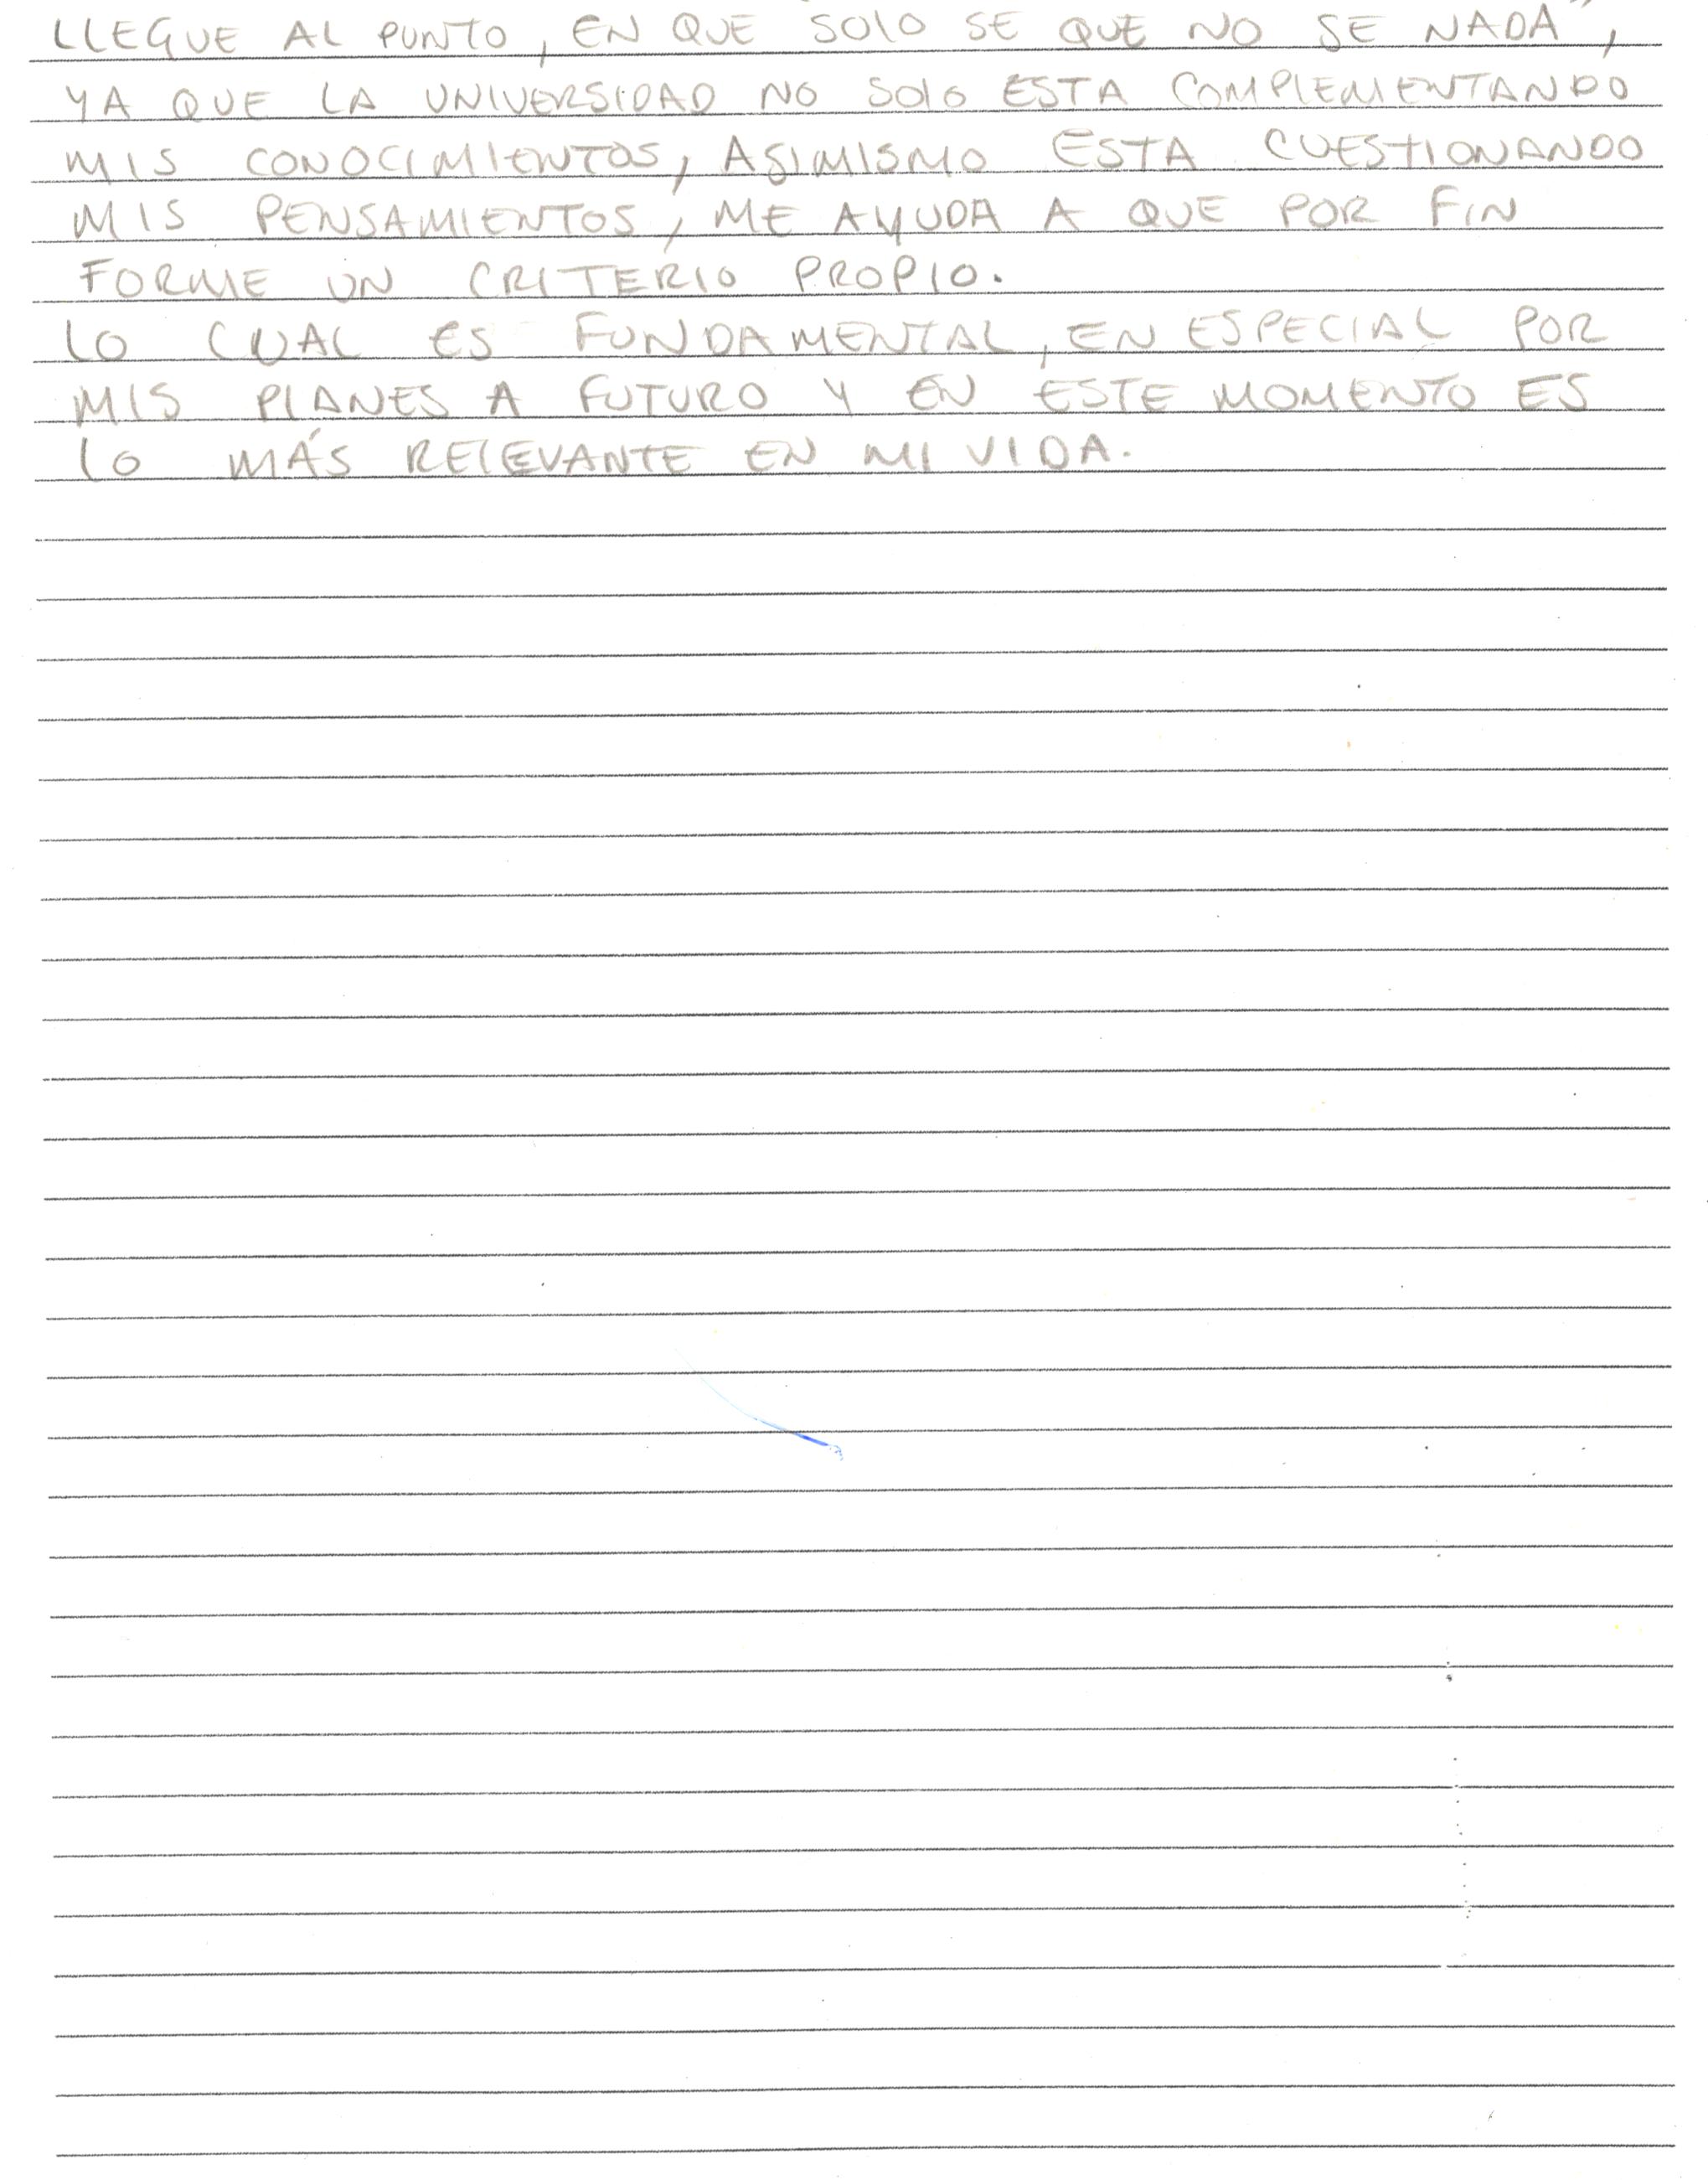 LLEGUE AL PUNTO, EN QUE SOLO SE QUE NO SE NADA",
YA QUE LA UNIVERSIDAD NO SOLO ESTA COMPLEMENTANDO
MIS CONOCIMIENTOS, ASIMISMO ESTA CUESTIONANDO
MIS PENSAMIENTOS, ME AYUDA A QUE POR FIN
FORME UN CRITERIO PROPIO.
LO CUAL ES FUNDAMENTAL, EN ESPECIAL POR
MIS PLANES A FUTURO Y EN ESTE MOMENTO ES
LO MÁS RELEVANTE EN MI VIDA.